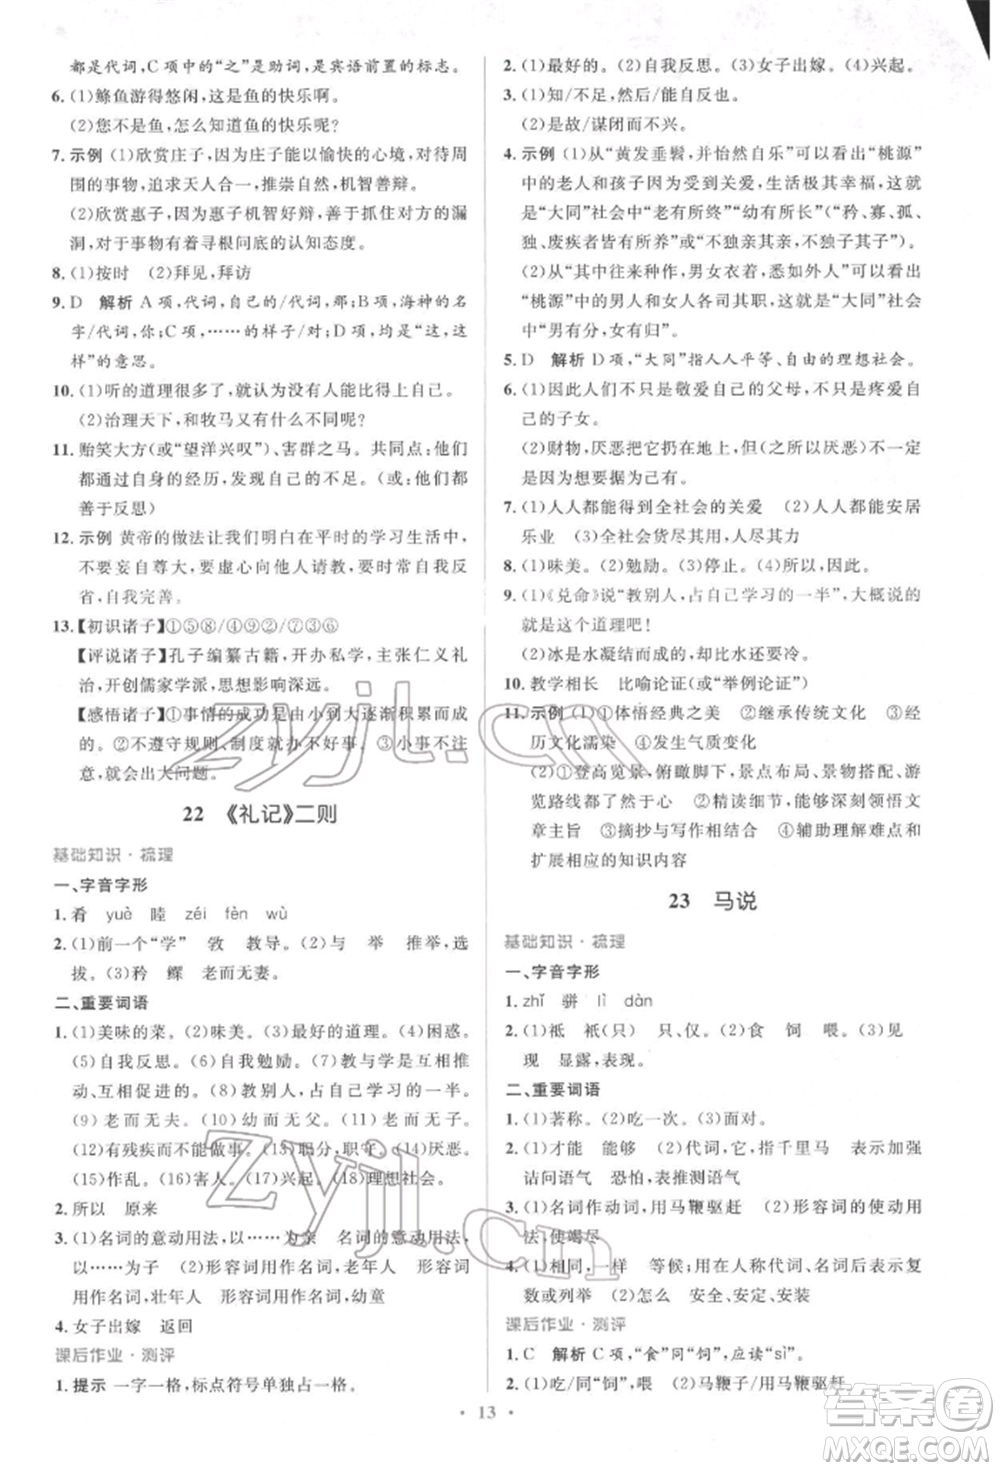 都是代词,C 项中的“之”是助词,是宾语前置的标志。
6. (1)鲦鱼游得悠闲,这是鱼的快乐啊。
(2)您不是鱼,怎么知道鱼的快乐呢?
7. 示例 (1)欣赏庄子,因为庄子能以愉快的心境,对待周
围的事物,追求天人合一,推崇自然,机智善辩。
(2)欣赏惠子,因为惠子机智好辩,善于抓住对方的漏
洞,对于事物有着寻根问底的认知态度。
8. (1)按时 (2)拜见,拜访
9. D 解析 A 项,代词,自己的/代词,那;B 项,海神的名
字/代词,你;C 项,……的样子/对;D 项,均是“这,这
样”的意思。
10. (1)听的道理很多了,就认为没有人能比得上自己。
(2)治理天下,和牧马又有什么不同呢?
11. 贻笑大方(或“望洋兴叹”)、害群之马。共同点:他们
都借自身的经历,反思自己的不足。(或:他们都
善于反思)
12. 示例 黄帝的做法让我们明白在平时的学习生活中,
不要盲目自大,要虚心向他人请教,以此来自我反
省,自我完善。
13.【初识诸子】①⑤⑧/④⑨②/⑦③⑥
【评说诸子】孔子编纂古籍,开办私学,主张仁义礼
治,开创儒家学派,思想影响深远。
【感悟诸子】①事情的成功是由小到大逐渐积累而成
的。②不遵守规则、制度就办不好事。③小事不注
意,就会出大问题。
22 《礼记》二则
基础知识·梳理
一、字音字形
1. 肴 yuè 睦 zéi fèn wù
2. (1)前一个“学” 敩 教导。(2)与 举 推举,选
拔。(3)矜 鳏 老而无妻。
二、重要词语
1. (1)美味的菜。(2)味美。(3)最好的道理。(4)困惑。
(5)自我反思。(6)自我勉励。(7)教与学是互相推
动、互相促进的。(8)教别人,占自己学习的一半。
(9)老而无夫。(10)幼而无父。(11)老而无子。
(12)有残疾而不能做事。(13)职分,职守。(14)厌恶。
(15)作乱。(16)害人。(17)兴起。(18)理想社会。
2. 所以 原来
3. (1)名词的意动用法,以……为亲 名词的意动用法,
以……为子 (2)形容词用作名词,老年人 形容词
用作名词,壮年人 形容词用作名词,幼童
4. 女子出嫁 返回
课后作业·测评
1. 提示 一字一格,标点符号单独占一格。
2. (1)最好的。(2)自我反思。(3)女子出嫁。(4)兴起。
3. (1)知/不足,然后/能自反也。
(2)是故/谋闭而不兴。
4. 示例 (1)从“黄发垂髫,并怡然自乐”可以看出“桃源”
中的老人和孩子因为受到关爱,生活极其幸福,这就
是“大同”社会中“老有所终”“幼有所长”(“矜、寡、孤、
独、废疾者皆有所养”“故人不独亲其亲,不独子其子”)。
(2)从“其中往来种作,男女衣着,悉如外人”可以看出
“桃源”中的男人和女人各司其职,这就是“大同”社会
中“男有分,女有归”。
5. D 解析 D 项,“大同”指人人平等、自由的理想社会。
6. (1)因此人们不只是敬爱自己的父母,不只是疼爱自
己的子女。
(2)财物,厌恶把它扔在地上,但(之所以厌恶)不一定
是因为想据为己有。
7. (1)人人都能得到全社会的关爱 (2)人人都能安居
乐业 (3)全社会货尽其用,人尽其力
8. (1)味美。(2)勉励。(3)停止。(4)所以,因此。
9. (1)《兑命》说“教别人,占自己学习的一半”,大概说的
就是这个道理吧!
(2)冰是水凝结而成的,却比水还要冷。
10. 教学相长 比喻论证(或“举例论证”)
11. 示例 (1)①体悟经典之美 ②继承传统文化 ③经
历文化濡染 ④发生气质变化
(2)①登高览景,俯瞰脚下,景点布局、景物搭配、游
览路线都了然于心 ②精读细节,能够深刻领悟文
章主旨 ③摘抄与写作相结合 ④辅助理解难点和
扩展相应的知识内容
23 马说
基础知识·梳理
一、字音字形
1. zhǐ 骈 lì dàn
2. (1)祇 祇(只) 只,仅。(2)食 饲 喂。(3)见
现 显露,表现。
二、重要词语
1. (1)著称。(2)吃一次。(3)面对。
2. (1)才能 能够 (2)代词,它,指千里马 表示加强
诘问语气 恐怕,表推测语气
3. (1)名词作动词,用马鞭驱赶 (2)形容词的使动用
法,使竭尽
4. (1)相同,一样 等候;用在人称代词、名词后表复
数或列举 (2)怎么 安全、安定、安装
课后作业·测评
1. C 解析 C 项,“食”同“饲”,应读“sì”。
2. (1)吃/同“饲”,喂 (2)马鞭子/用马鞭驱赶
• 13 •
zyjl.cn
zyjl.cn
答案圈
MXQE.COM